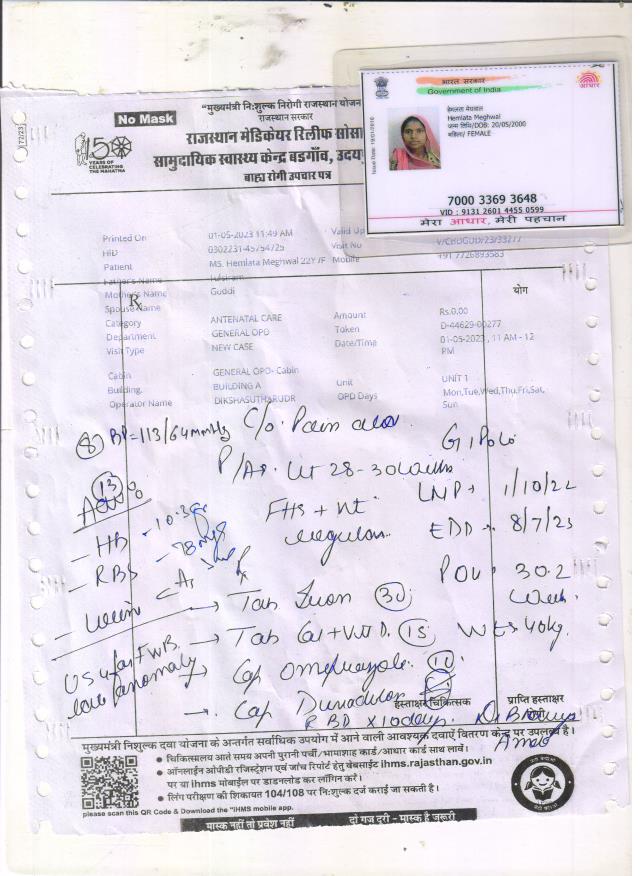 "मुख्यमंत्री नि:शुल्क निरोगी राजस्थान योजन
राजस्थान सरकार
No Mask
राजस्थान मेडिकेयर रिलीफ सोसा
सामुदायिक स्वास्थ्य केन्द्र बडगाँव, उदय
बाह्य रोगी उपचार पत्र
72/23
150
YEARS OF
CELEBRATING
THE MAHATMA
भारत सरकार
Government of India
आधार
हेमलता मेघवाल
Hemlata Meghwal
जन्म तिथि/DOB: 20/05/2000
महिला/ FEMALE
7000 3369 3648
VID : 9131 2601 4455 0599
मेरा आधार, मेरी पहचान
Printed On 01-05-2023 11:49 AM Valid Up
HID 0302231-45754725 Visit No
Patient MS. Hemlata Meghwal 22Y /F Mobile +91 7726893583
Father's Name
Mother's Name Guddi
योग
Spouse Name
Category ANTENATAL CARE Amount Rs.0.00
Department GENERAL OPD Token D-44629-00277
Visit Type NEW CASE Date/Time 01-05-2023, 11 AM - 12 PM
Cabin GENERAL OPD- Cabin
Building. BUILDING A Unit UNIT 1
Operator Name DIKSHASUTHARUDR OPD Days Mon,Tue,Wed,Thu,Fri,Sat, Sun
BP=113/64mmHg C/o Pain
P/A Ut 28-30 weeks
LMP 1/10/22
FHS + nt
regular
EDD 8/7/23
- HB - 10.3
- RBS - 78mg
POG 30.2 week.
- urine
→ Tab Iron (30)
→ Tab Cal+Vit D. (15) Wt 40kg.
USG for FWB
Cap Omeprazole (10)
→ Cap
हस्ताक्षर चिकित्सक
प्राप्ति हस्ताक्षर
मुख्यमंत्री निःशुल्क दवा योजना के अन्तर्गत सर्वाधिक उपयोग में आने वाली आवश्यक दवाऐं वितरण केन्द्र पर उपलब्ध है।
• चिकित्सालय आते समय अपनी पुरानी पर्ची/भामाशाह कार्ड/आधार कार्ड साथ लावें।
• ऑनलाईन ओपीडी रजिस्ट्रेशन एवं जांच रिपोर्ट हेतु बेबसाईट ihms.rajasthan.gov.in
पर या ihms मोबाईल पर डाडनलोड कर लॉगिन करें।
• लिंग परीक्षण की शिकायत 104/108 पर नि:शुल्क दर्ज कराई जा सकती है।
please scan this QR Code & Download the "IHMS mobile app.
मास्क नहीं तो प्रवेश नहीं दो गज दूरी - मास्क है जरूरी